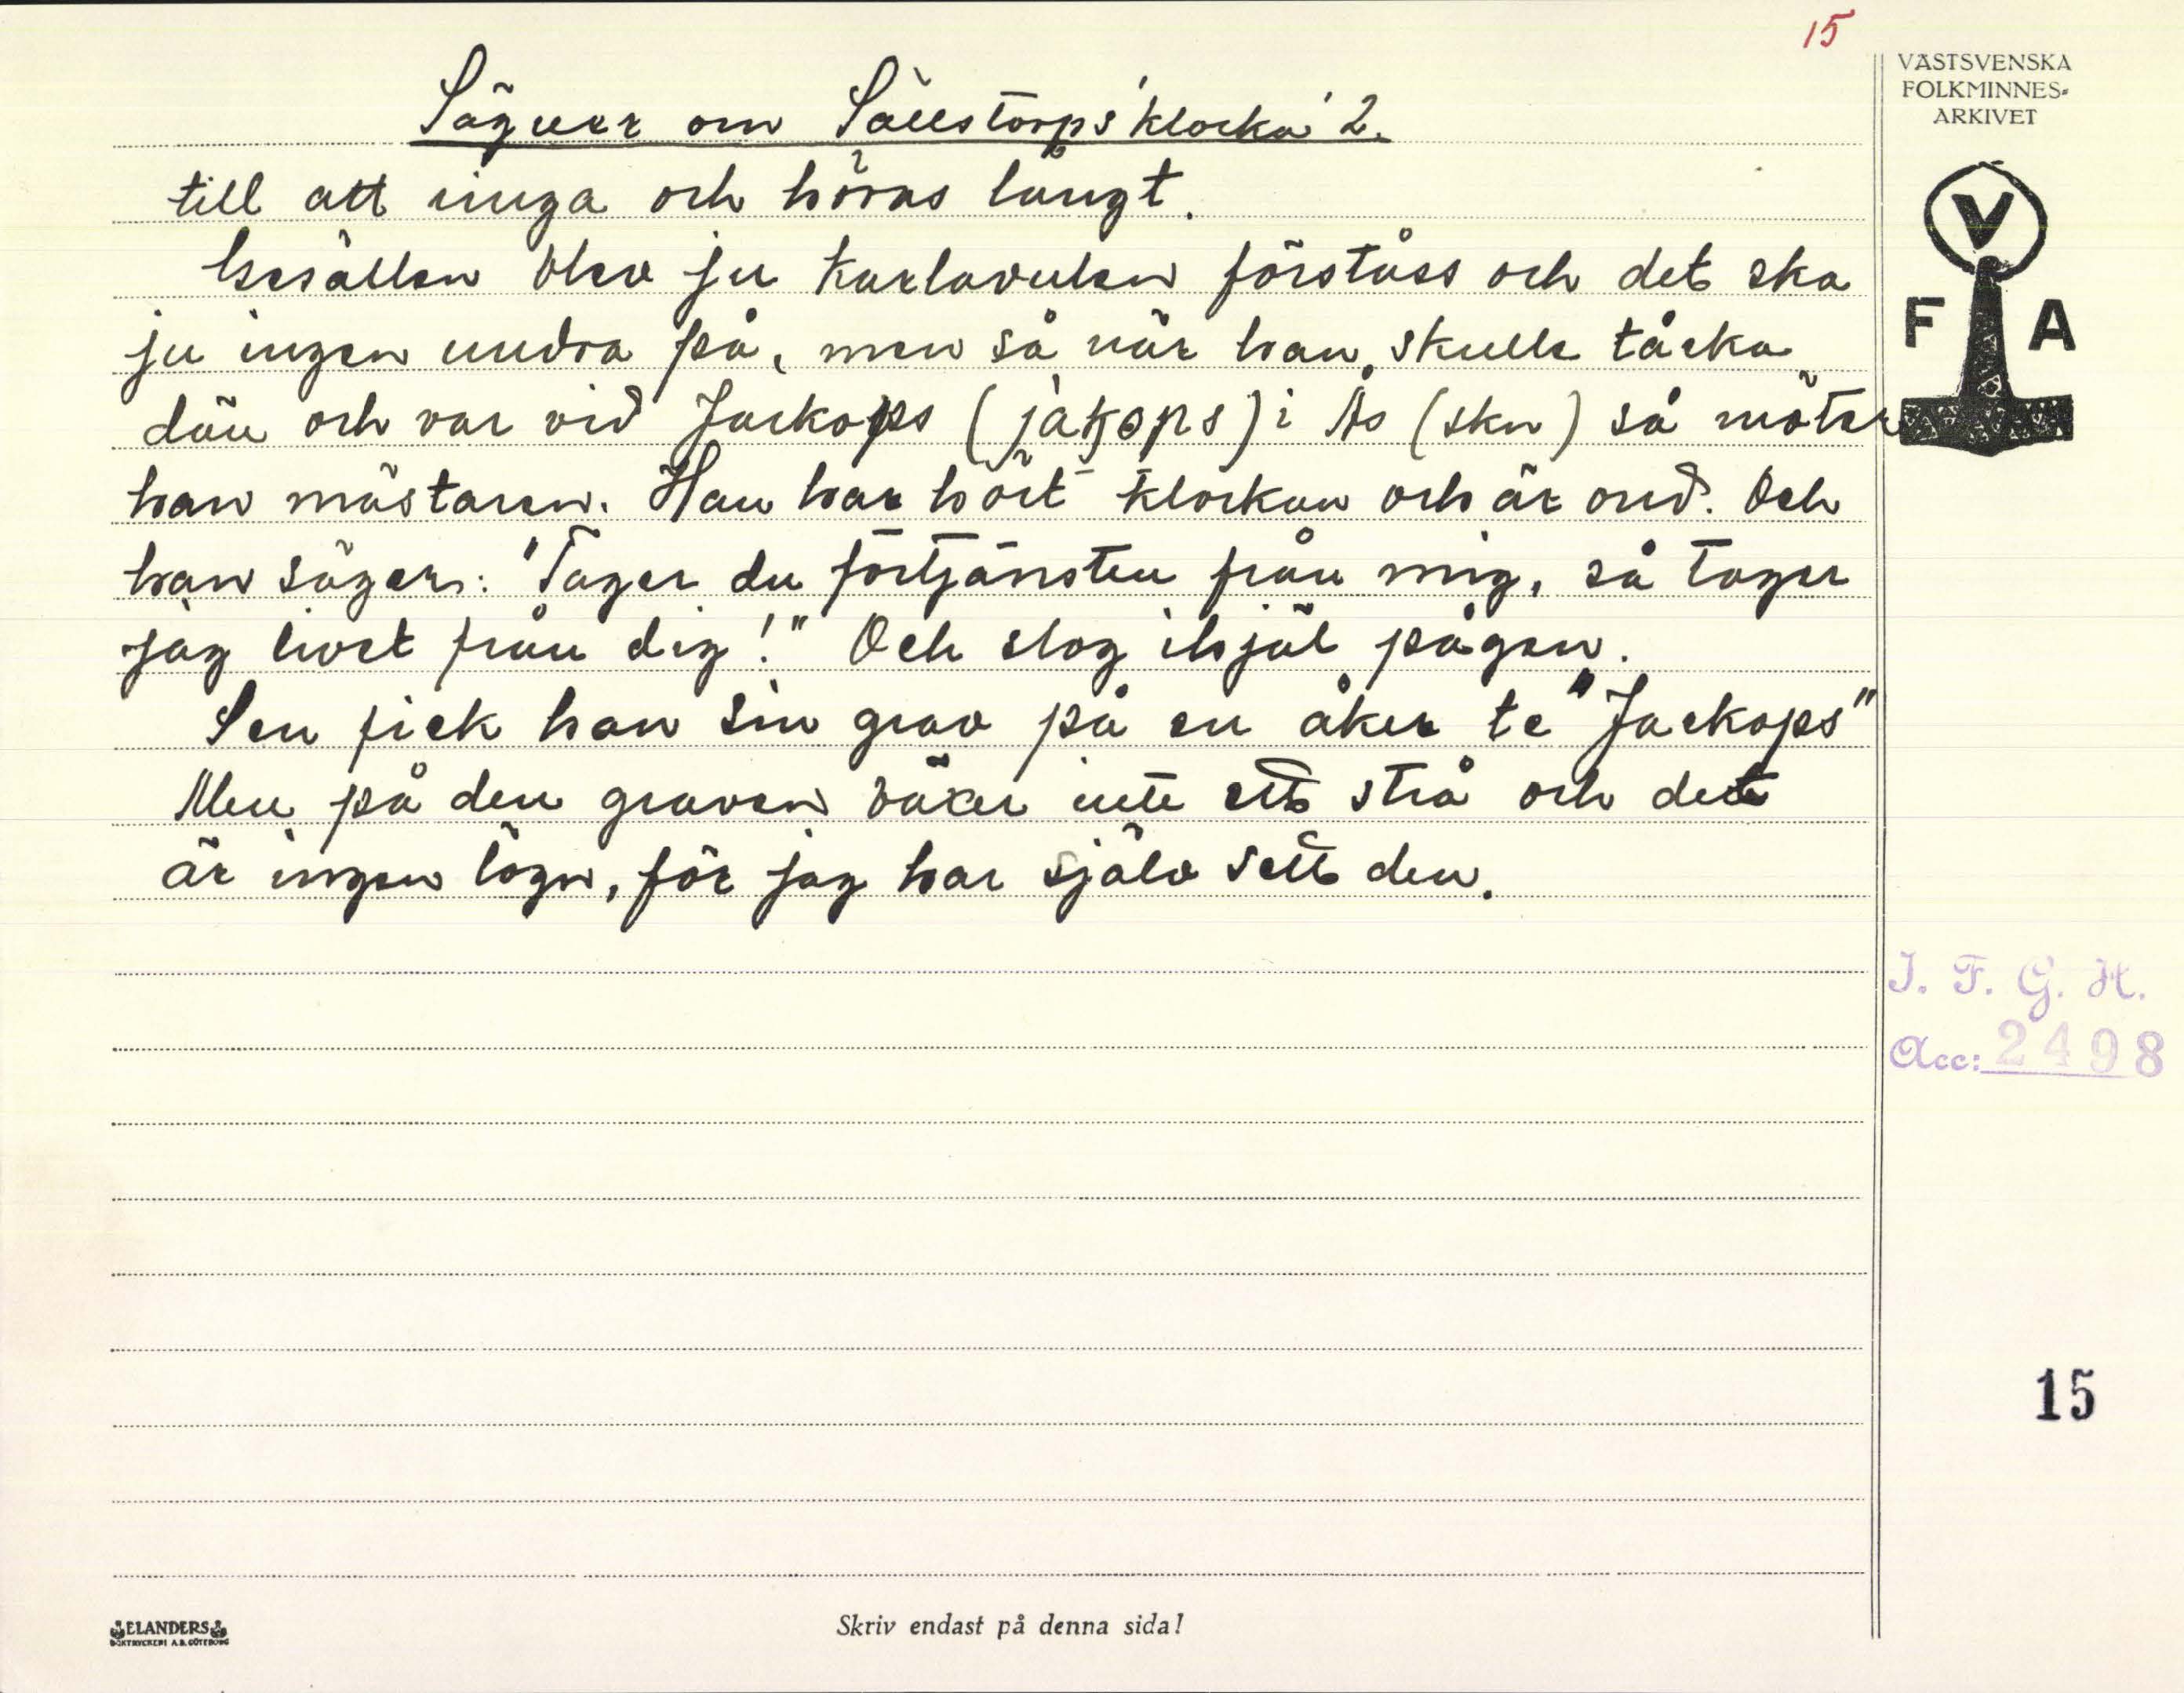 15
VÄSTSVENSKA
FOLKMINNES-
ARKIVET
Sägner om Sällstorps 'klocka' 2.
till att ringa och höras långt.
V
Gesällen blev ju karlavulen förståss och det ska
F A
ju ingen undra på, men så när han skulle tåcka
dän och var vid Jackops (jakops) i Ås (skn) så möter
han mästaren. Han har hört klockan och är ond. Och
han säger: "Tager du förtjänsten från mig, så tager
jag livet från dig!" Och slog ihjäl pågen.
Sen fick han sin grav på en åker te "Jackops"
Men på den graven växer inte ett strå och det
är ingen lögn, för jag har själv sett den.
I. F. G. H.
Acc: 2498
15
ELANDERS
BOKTRYCKERI A.B. GÖTEBORG
Skriv endast på denna sida!